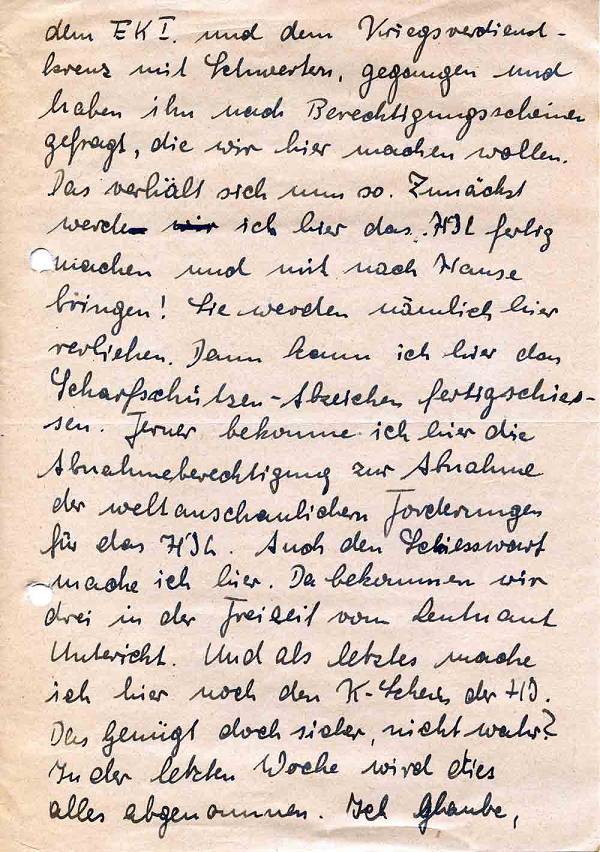 dem EK I. und dem Kriegsverdienst-
kreuz mit Schwertern, gegangen und
haben ihn nach Berechtigungsscheinen
gefragt, die wir hier machen wollen.
Das verhält sich nun so. Zunächst
werde wir ich hier das HJL fertig
machen und mit nach Hause
bringen! Sie werden nämlich hier
verliehen. Dann kann ich hier das
Scharfschützen-Abzeichen fertigschies-
sen. Ferner bekomme ich hier die
Abnahmeberechtigung zur Abnahme
der weltanschaulichen Forderungen
für das HJL. Auch den Schiesswart
mache ich hier. Da bekommen wir
drei in der Freizeit vom Leutnant
Untericht. Und als letztes mache
ich hier noch den K-Schein der HJ.
Das genügt doch sicher, nicht wahr?
In der letzten Woche wird dies
alles abgenommen. Ich glaube,